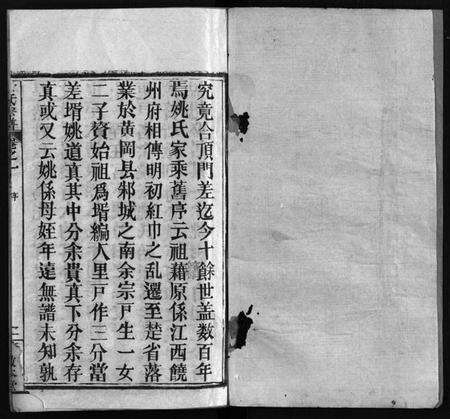 究竟合頂門差迄今十餘世蓋數百年
焉姚氏家乘舊序云祖藉原係江西饒
州府相傳明初紅巾之亂遷至楚省落
業於黄岡县邾城之南余宗戸生一女
二子贅始祖爲壻編入里戸作三分當
差壻姚道真其中分余貴真下分余存
真或又云姚係母姪年遠無譜未知孰
氏宗譜
卷之一
序
二